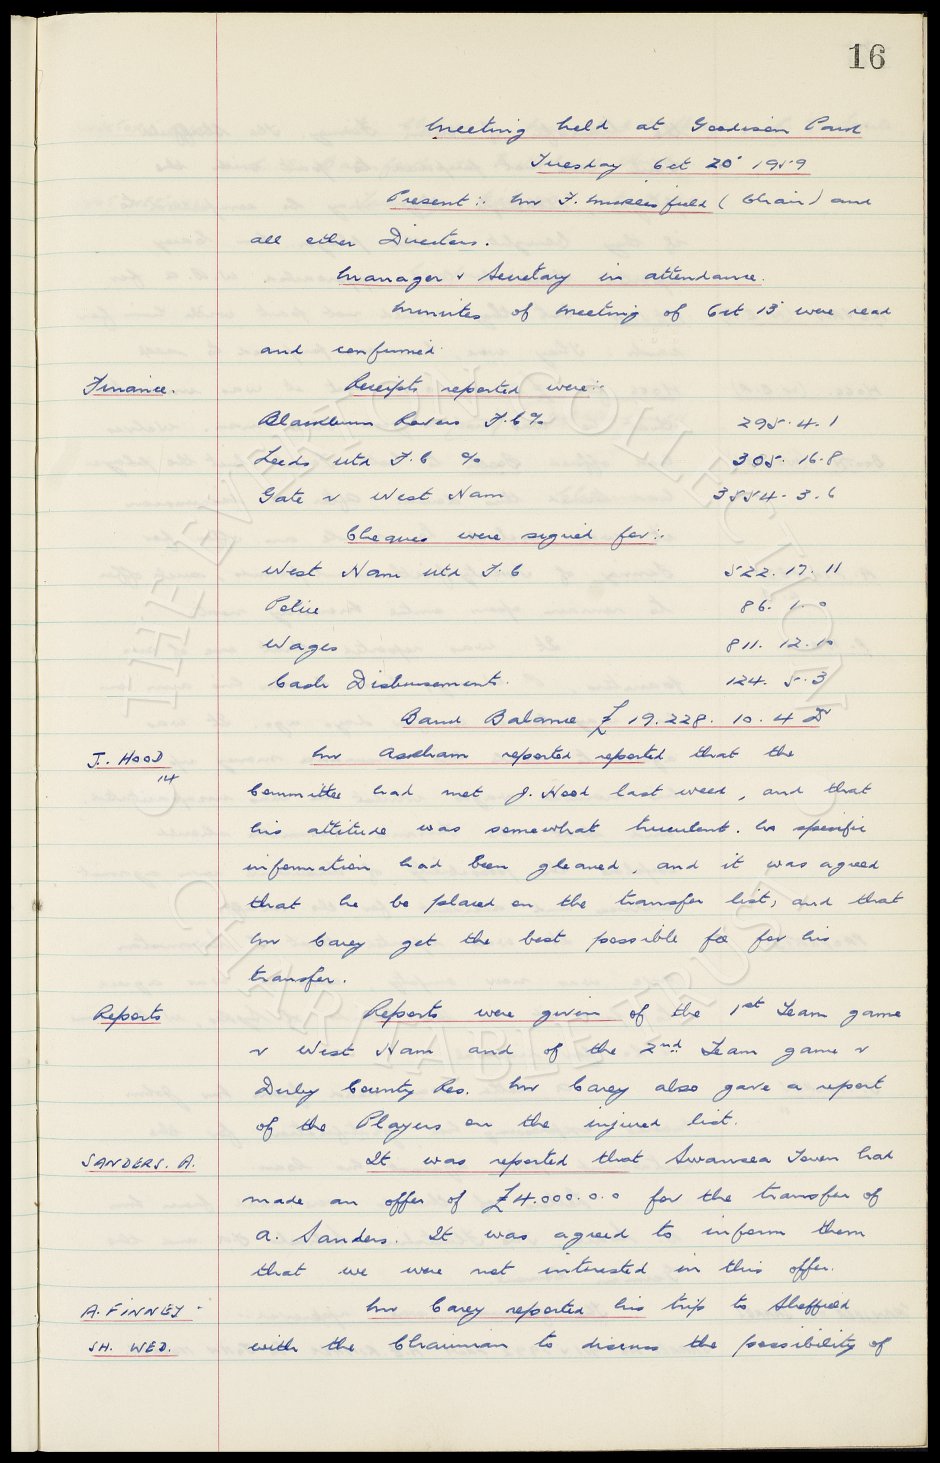 16
Meeting held at Goodison Park
Tuesday Oct 20' 1959
Present:- Mr F. Micklesfield (Chair) and
all other Directors.
Manager & Secretary in attendance.
Minutes of Meeting of Oct 13' were read
and confirmed.
Finance. Receipts reported were:-
Blackburn Rovers F.C % 295. 4. 1
Leeds Utd F.C % 305. 16. 8
Gate v West Ham 3554. 3. 6
Cheques were signed for:-
West Ham Utd F.C 522. 17. 11
Police 86. 1. 0
Wages 811. 12. 10
Cash Disbursements. 124. 5. 3
Bank Balance £ 19.228. 10. 4 Dr
J. HOOD Mr Askham reported reported that the
14 Committee had met J. Hood last week, and that
his attitude was somewhat truculent. No specific
information had been gleaned, and it was agreed
that he be placed on the transfer list, and that
Mr Carey get the best possible fee for his
transfer.
Reports Reports were given of the 1st Team game
v West Ham and of the 2nd Team game v
Derby County Res. Mr Carey also gave a report
of the Players on the injured list.
SANDERS. A. It was reported that Swansea Town had
made an offer of £4.000.0.0 for the transfer of
A. Sanders. It was agreed to inform them
that we were not interested in this offer.
A. FINNEY - Mr Carey reported his trip to Sheffield
SH. WED. with the Chairman to discuss the possibility of
THE EVERTON COLLECTION
CHARITABLE TRUST